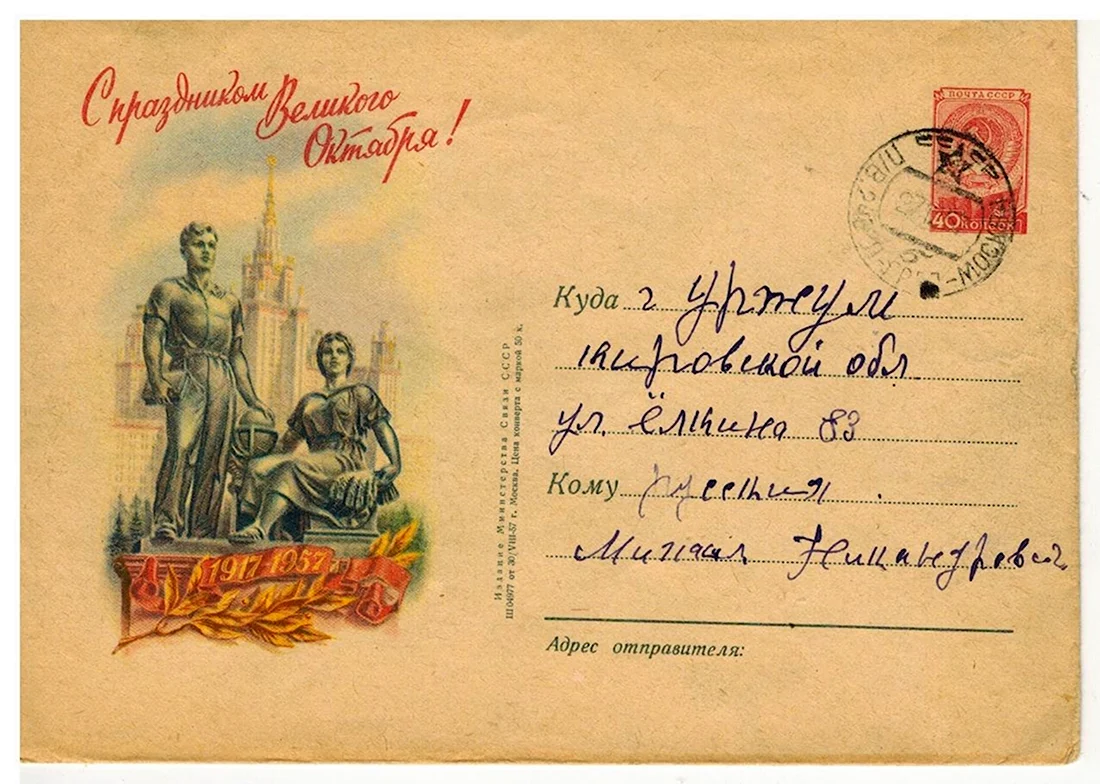 С праздником
Великого
Октября!
ПОЧТА СССР
40 КОПЕЕК
Куда г Уржум
кировской обл
ул. Ёлкина 83
Кому
Михаил Никандрович
Адрес отправителя:
Издание Министерства Связи СССР
Ш 04977 от 30/VIII-57 г. Москва. Цена конверта с маркой 50 к.
1917-1957